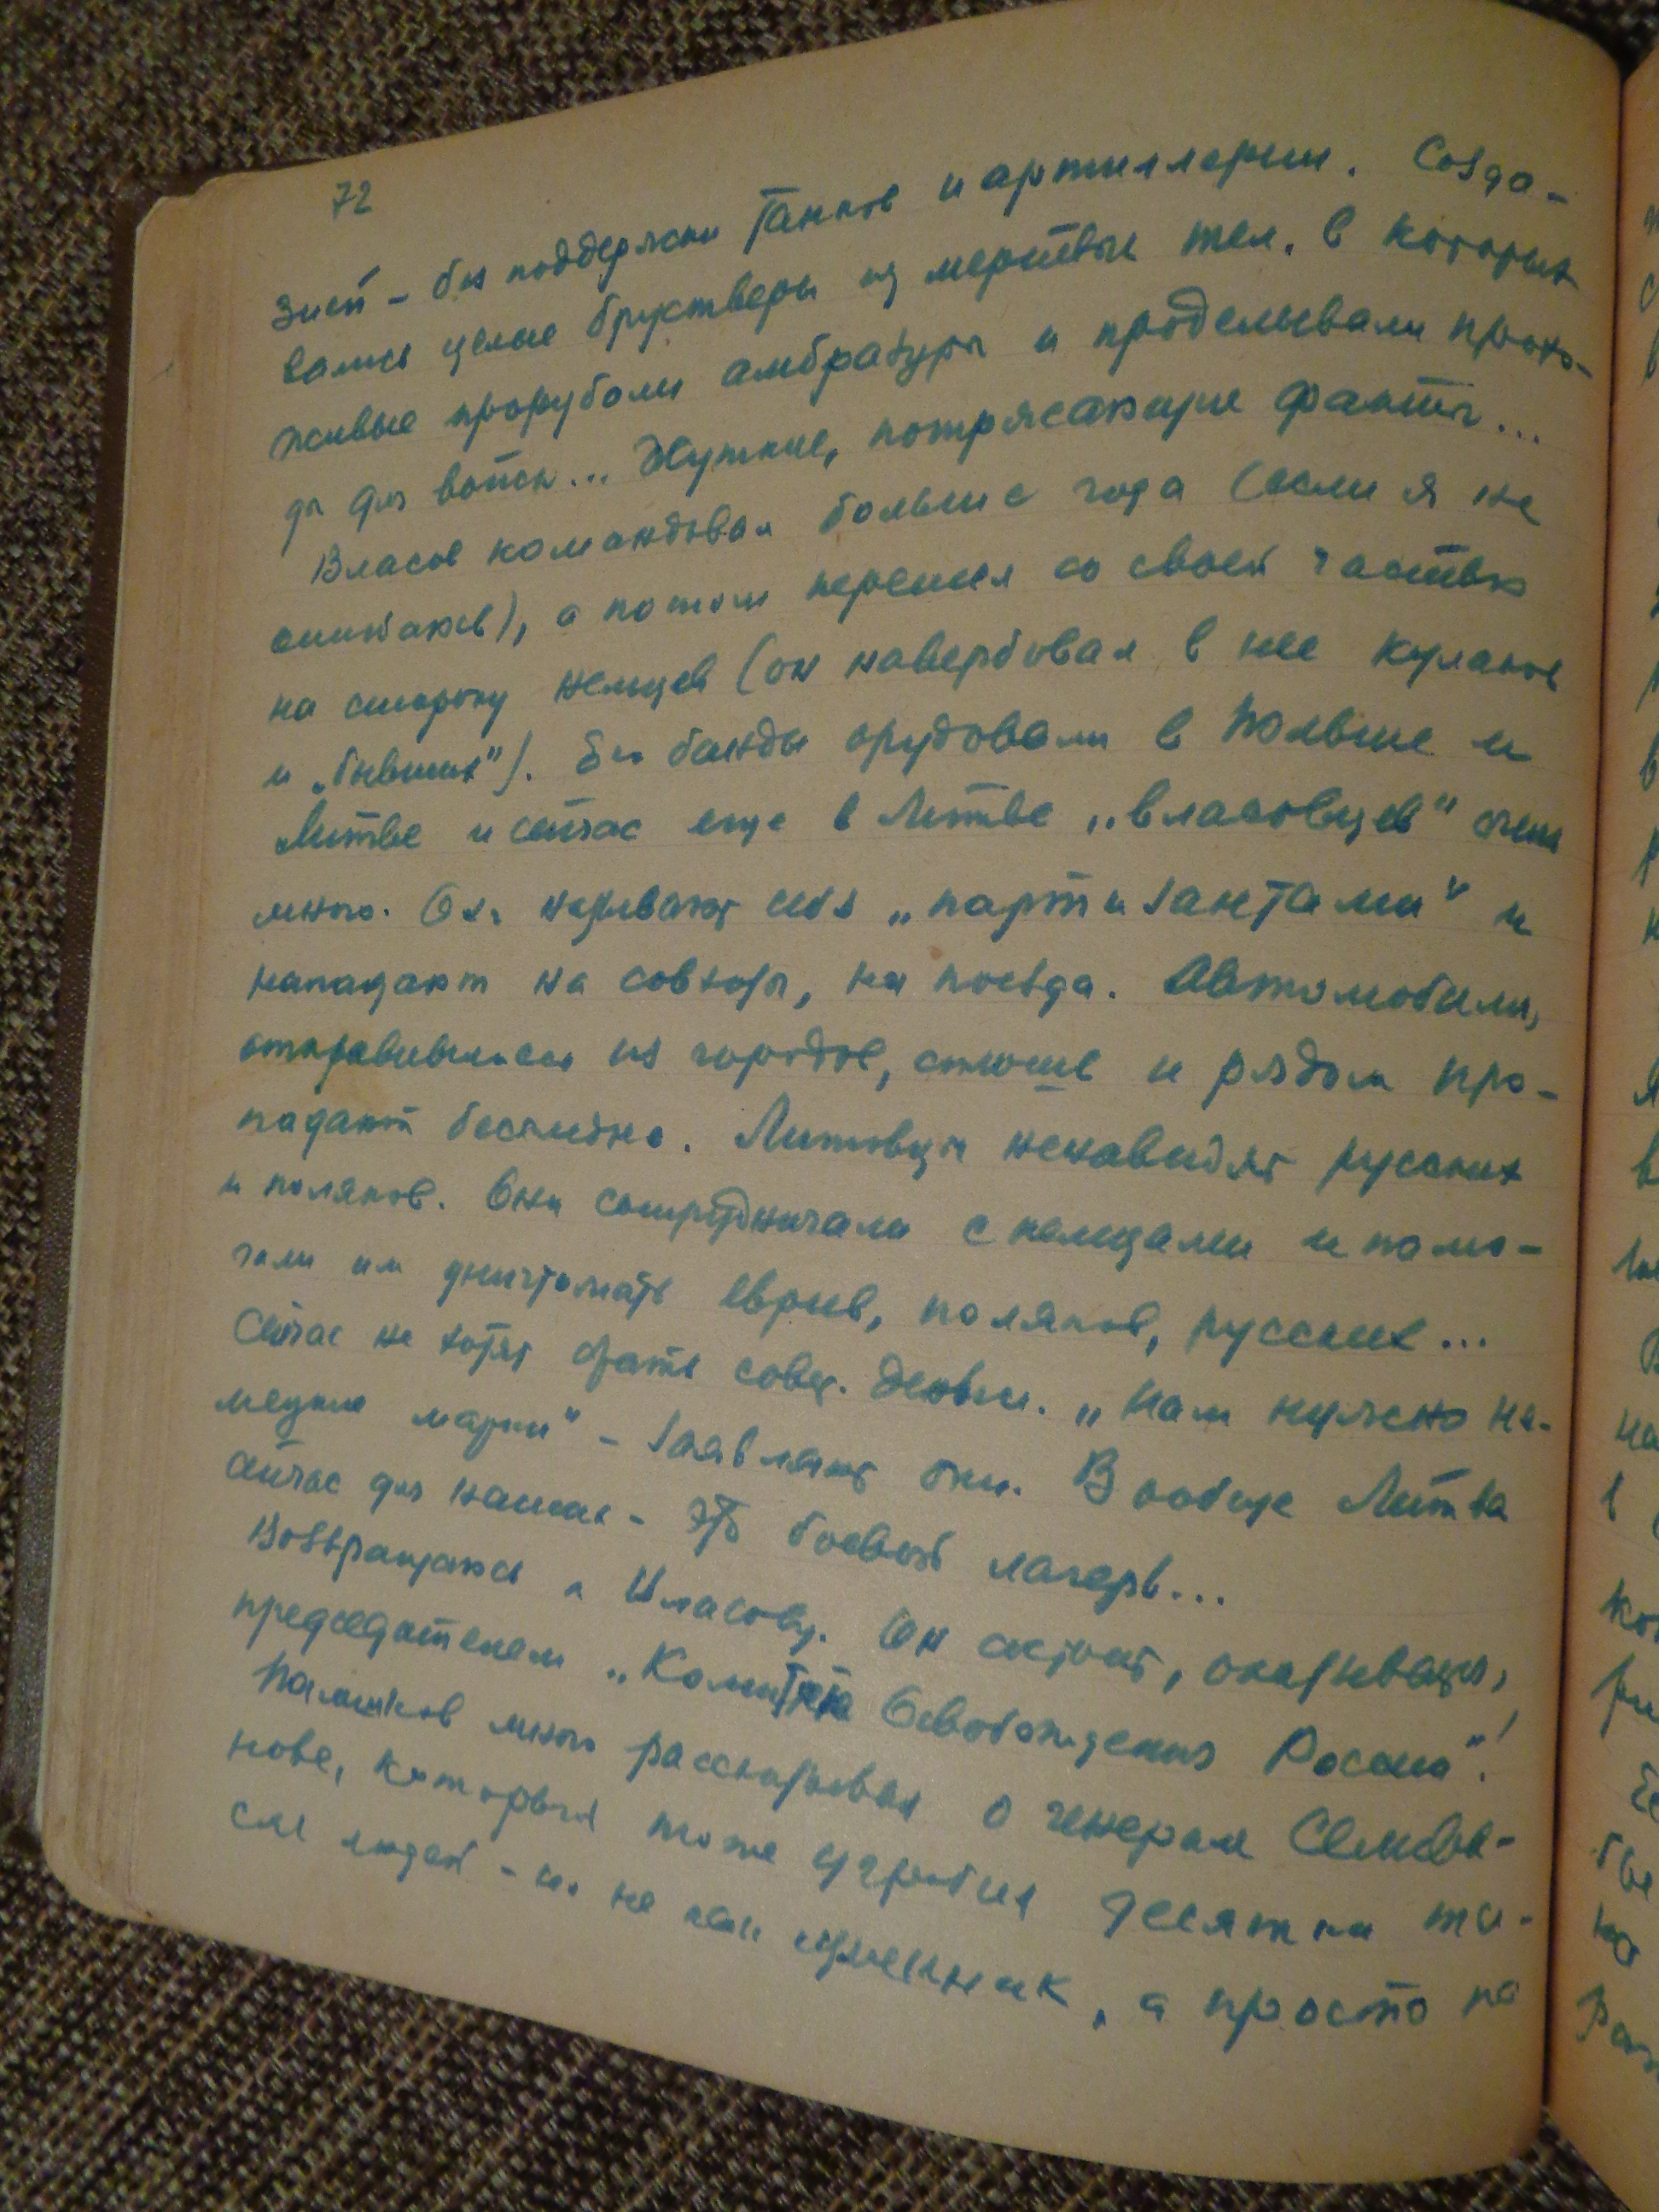 72
зией – без поддержки танков и артиллерии. Созда-
вались целые брустверы из мертвых тел, в которых
живые прорубали амбразуры и проделывали прохо-
ды для войск... Жуткие, потрясающие факты...
Власов командовал больше года (если я не
ошибаюсь), а потом перешел со своей частью
на сторону немцев (он навербовал в нее кулаков
и „бывших"). Его банды орудовали в Польше и
Литве и сейчас еще в Литве „власовцев" очень
много. Они называют себя „партизантами" и
нападают на совхозы, на поезда. Автомобили,
отправившиеся из городов, сплошь и рядом про-
падают бесследно. Литовцы ненавидят русских
и поляков. Они сотрудничали с немцами и помо-
гали им уничтожать евреев, поляков, русских...
Сейчас не хотят брать совет. деньги. „Нам нужно не-
мецкие марки" – заявляют они. Вообще Литва
сейчас для наших – это боевой лагерь...
Возвращаюсь к Власову. Он состоит, оказывается,
председателем „Комитета Освобождения России"!
много рассказывал о генерале Селива-
нове, который тоже угробил десятки ты-
сяч людей – но не как изменник, а просто по